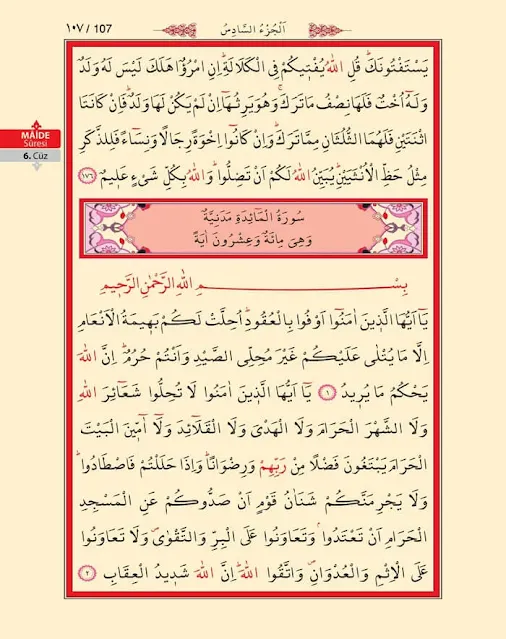 ١٠٧ / 107
اَلْجُزْءُ السَّادِسُ
MÂİDE
Sûresi
6. Cüz
يَسْتَفْتُونَكَۜ قُلِ اللّٰهُ يُفْتٖيكُمْ فِي الْكَلَالَةِۜ اِنِ امْرُؤٌا هَلَكَ لَيْسَ لَهُ وَلَدٌ
وَلَهُٓ اُخْتٌ فَلَهَا نِصْفُ مَا تَرَكَۚ وَهُوَ يَرِثُهَٓا اِنْ لَمْ يَكُنْ لَهَا وَلَدٌۜ فَاِنْ كَانَتَا
اثْنَتَيْنِ فَلَهُمَا الثُّلُثَانِ مِمَّا تَرَكَۜ وَاِنْ كَانُٓوا اِخْوَةً رِجَالًا وَنِسَٓاءً فَلِلذَّكَرِ
مِثْلُ حَظِّ الْاُنْثَيَيْنِۜ يُبَيِّنُ اللّٰهُ لَكُمْ اَنْ تَضِلُّواۜ وَاللّٰهُ بِكُلِّ شَيْءٍ عَلٖيمٌ ﴿١٧٦﴾
سُورَةُ الْمَٓائِدَةِ مَدَنِيَّةٌ
وَهِيَ مِائَةٌ وَعِشْرُونَ اٰيَةً
بِسْمِ اللّٰهِ الرَّحْمٰنِ الرَّحٖيمِ
يَٓا اَيُّهَا الَّذٖينَ اٰمَنُٓوا اَوْفُوا بِالْعُقُودِۜ اُحِلَّتْ لَكُمْ بَهٖيمَةُ الْاَنْعَامِ
اِلَّا مَا يُتْلٰى عَلَيْكُمْ غَيْرَ مُحِلِّي الصَّيْدِ وَاَنْتُمْ حُرُمٌۜ اِنَّ اللّٰهَ
يَحْكُمُ مَا يُرٖيدُ ﴿١﴾ يَٓا اَيُّهَا الَّذٖينَ اٰمَنُوا لَا تُحِلُّوا شَعَٓائِرَ اللّٰهِ
وَلَا الشَّهْرَ الْحَرَامَ وَلَا الْهَدْيَ وَلَا الْقَلَٓائِدَ وَلَٓا اٰمّٖينَ الْبَيْتَ
الْحَرَامَ يَبْتَغُونَ فَضْلًا مِنْ رَبِّهِمْ وَرِضْوَانًاۜ وَاِذَا حَلَلْتُمْ فَاصْطَادُواۜ
وَلَا يَجْرِمَنَّكُمْ شَنَاٰنُ قَوْمٍ اَنْ صَدُّوكُمْ عَنِ الْمَسْجِدِ
الْحَرَامِ اَنْ تَعْتَدُواۢ وَتَعَاوَنُوا عَلَى الْبِرِّ وَالتَّقْوٰىۖ وَلَا تَعَاوَنُوا
عَلَى الْاِثْمِ وَالْعُدْوَانِۖ وَاتَّقُوا اللّٰهَۜ اِنَّ اللّٰهَ شَدٖيدُ الْعِقَابِ ﴿٢﴾